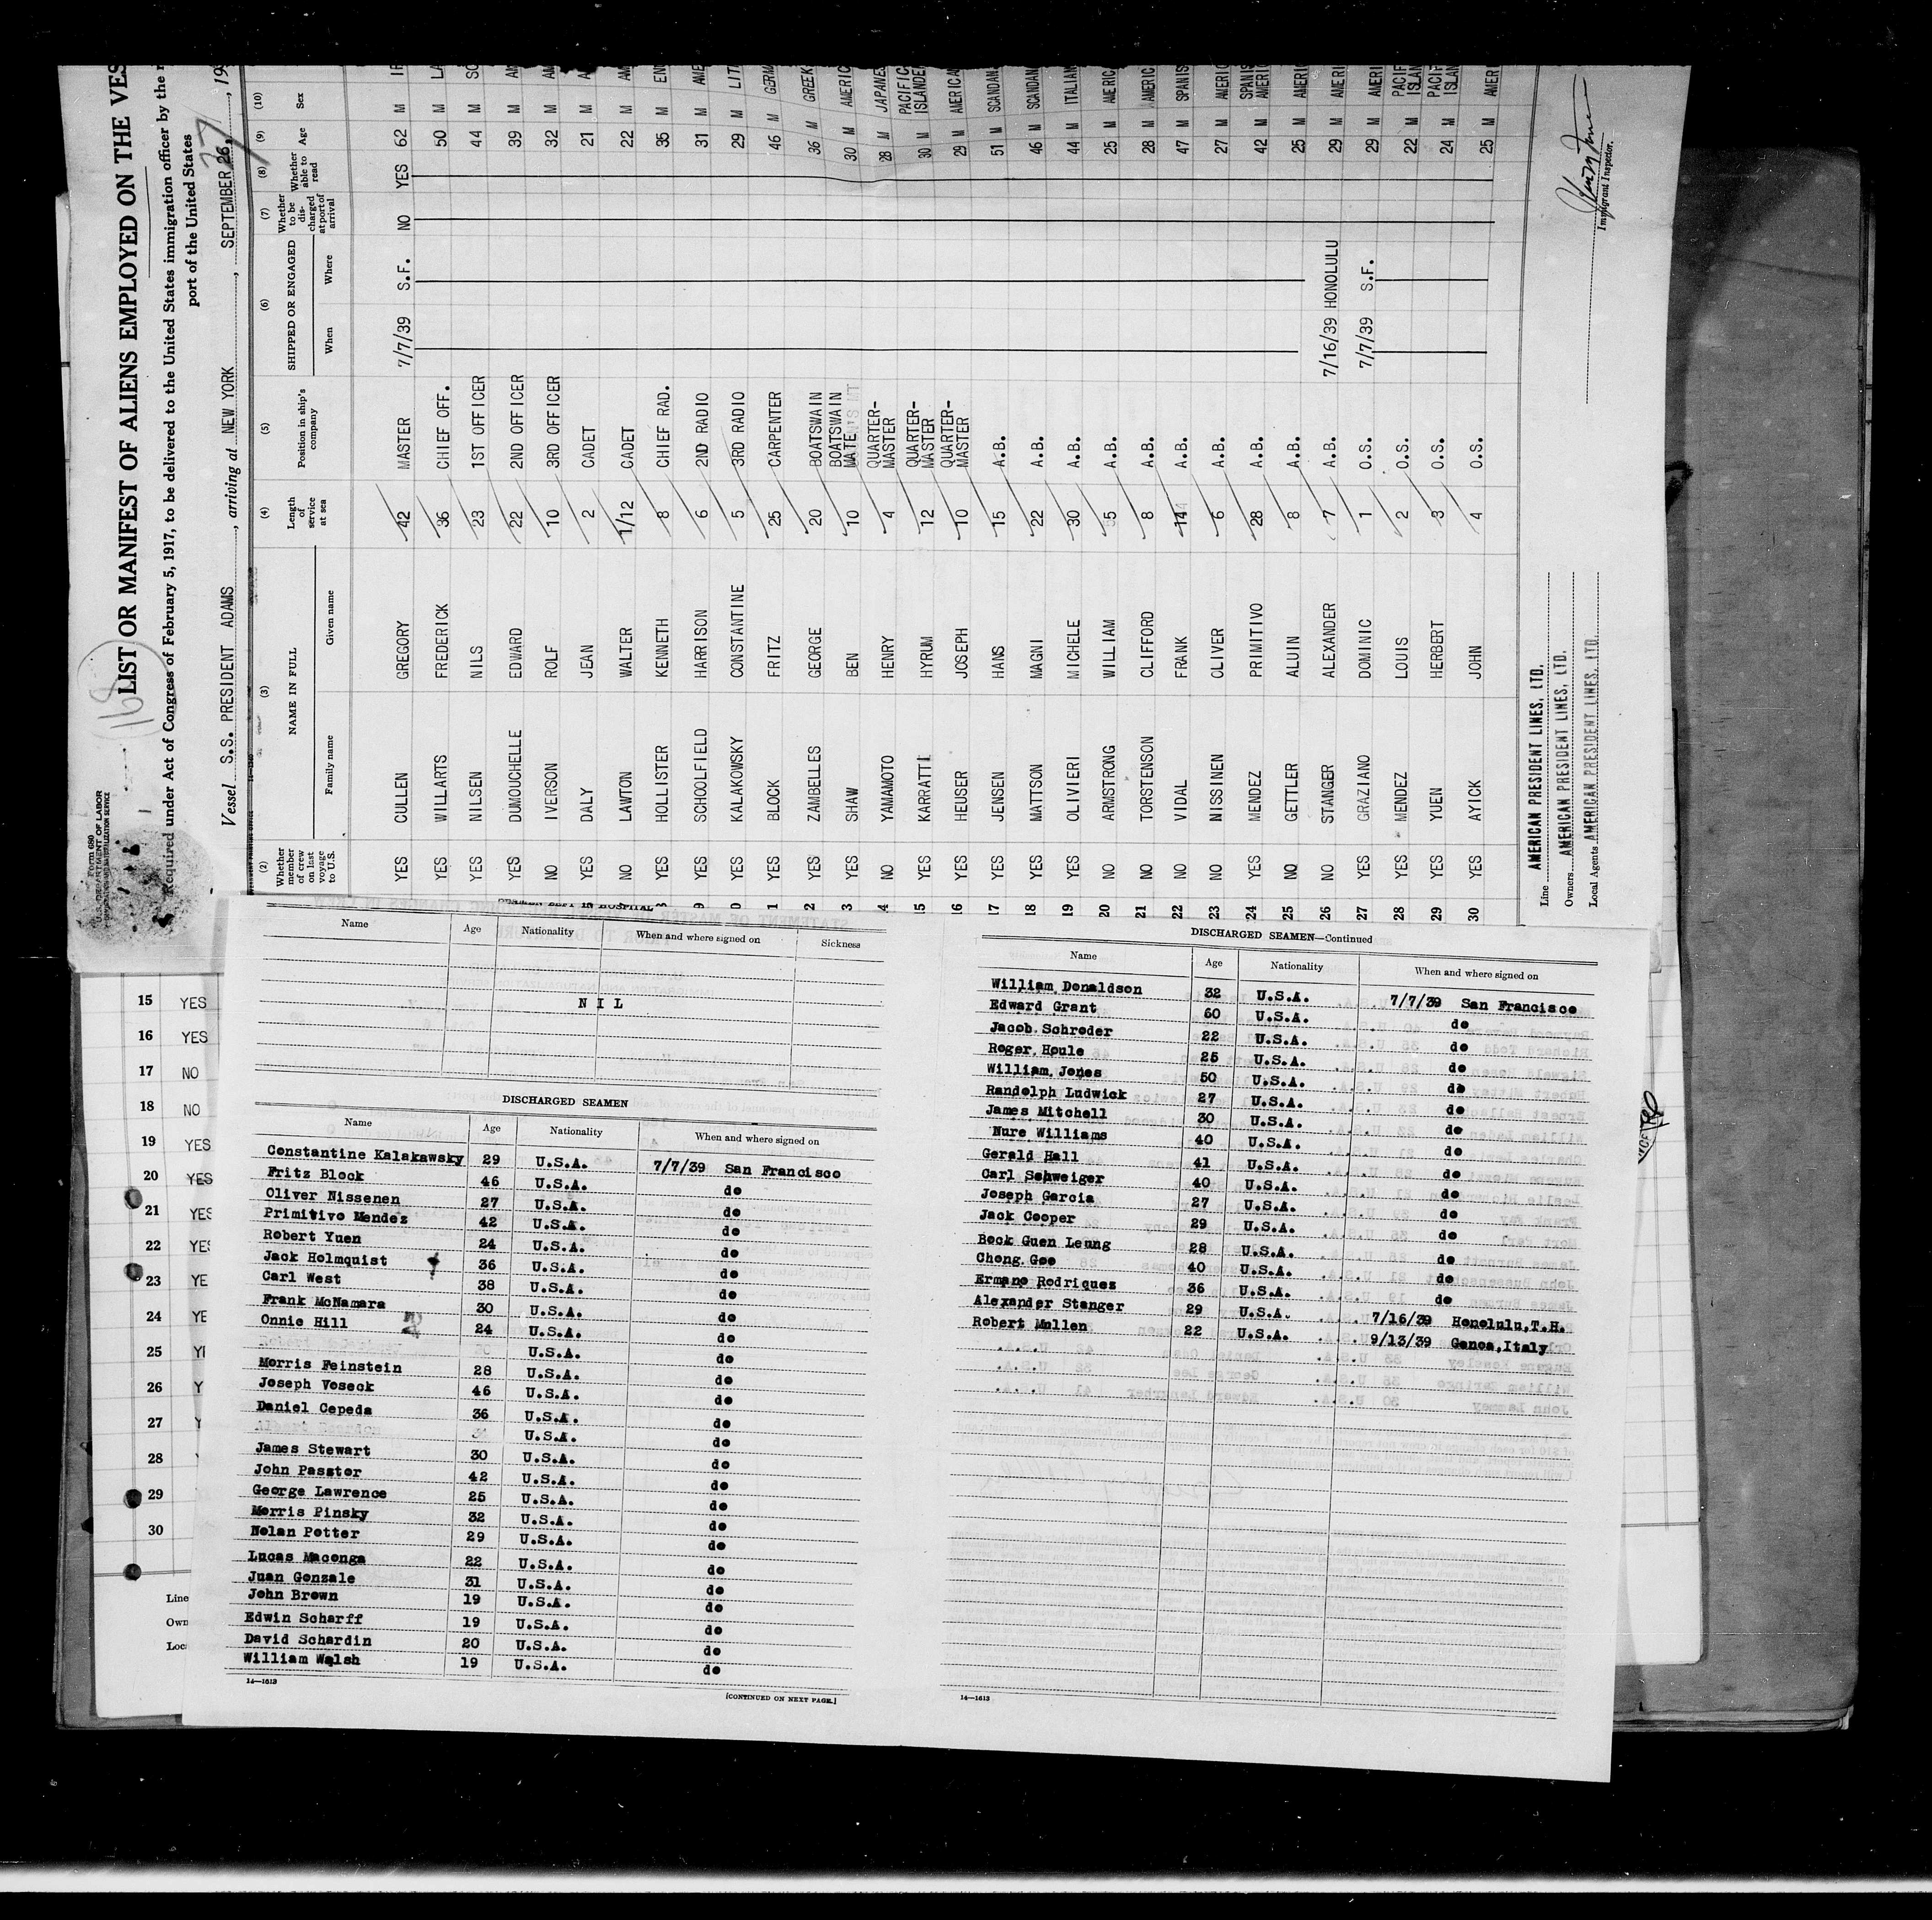 Form 680
U.S. DEPARTMENT OF LABOR
IMMIGRATION AND NATURALIZATION SERVICE
168
LIST OR MANIFEST OF ALIENS EMPLOYED ON THE VES
Required under Act of Congress of February 5, 1917, to be delivered to the United States immigration officer by the r
port of the United States
Vessel S.S. PRESIDENT ADAMS, arriving at NEW YORK, SEPTEMBER 26, 193
(2) (3) (4) (5) (6) (7) (8) (9) (10)
Whether member of crew on last voyage to U.S. NAME IN FULL Family name Given name Length of service at sea Position in ship's company SHIPPED OR ENGAGED When Where Whether to be discharged at port of arrival Whether able to read Age Sex
YES CULLEN GREGORY 42 MASTER 7/7/39 S.F. NO YES 62 M
YES WILLARTS FREDERICK 36 CHIEF OFF. 50 M LA
YES NILSEN NILS 23 1ST OFFICER 44 M SC
YES DUMOUCHELLE EDWARD 22 2ND OFFICER 39 M AM
NO IVERSON ROLF 10 3RD OFFICER 32 M AM
YES DALY JEAN 2 CADET 21 M A
NO LAWTON WALTER 1/12 CADET 22 M AM
YES HOLLISTER KENNETH 8 CHIEF RAD. 35 M EN
9 YES SCHOOLFIELD HARRISON 6 2ND RADIO 31 M AME
0 YES KALAKOWSKY CONSTANTINE 5 3RD RADIO 29 M LIT
1 YES BLOCK FRITZ 25 CARPENTER 46 M GERMA
2 YES ZAMBELLES GEORGE 20 BOATSWAIN 36 M GREEK
3 YES SHAW BEN 10 BOATSWAIN MATE 30 M AMERIC
14 NO YAMAMOTO HENRY 4 QUARTER-MASTER 28 M JAPANES
15 YES KARRATTI HYRUM 12 QUARTER-MASTER 30 M PACIFIC ISLANDE
16 YES HEUSER JOSEPH 10 QUARTER-MASTER 29 M AMERICA
17 YES JENSEN HANS 15 A.B. 51 M SCANDAN
18 YES MATTSON MAGNI 22 A.B. 46 M SCANDAN
19 YES OLIVIERI MICHELE 30 A.B. 44 M ITALIAN
20 NO ARMSTRONG WILLIAM 5 A.B. 25 M AMERIC
21 NO TORSTENSON CLIFFORD 8 A.B. 28 M AMERIC
22 NO VIDAL FRANK 14 A.B. 47 M SPANIS
23 NO NISSINEN OLIVER 6 A.B. 27 M AMERIC
24 YES MENDEZ PRIMITIVO 28 A.B. 42 M SPANIS AMERI
25 NO GETTLER ALUIN 8 A.B. 25 M AMERI
26 NO STANGER ALEXANDER 7 A.B. 7/16/39 HONOLULU 29 M AMERI
27 YES GRAZIANO DOMINIC 1 O.S. 7/7/39 S.F. 29 M AMERI
28 YES MENDEZ LOUIS 2 O.S. 22 M PACIF ISLAN
29 YES YUEN HERBERT 3 O.S. 24 M PACIF ISLAN
30 YES AYICK JOHN 4 O.S. 25 M AMERI
Line AMERICAN PRESIDENT LINES, LTD.
Owners AMERICAN PRESIDENT LINES, LTD.
Local Agents AMERICAN PRESIDENT LINES, LTD.
Immigrant Inspector.
15 YES
16 YES
17 NO
18 NO
19 YES
20 YES
21 YES
22 YES
23 YE
24 YE
25 YE
26 Y
27 Y
28
29
30
Line
Own
Loc
Name Age Nationality When and where signed on Sickness
N I L
DISCHARGED SEAMEN
Name Age Nationality When and where signed on
Constantine Kalakawsky 29 U.S.A. 7/7/39 San Francisco
Fritz Block 46 U.S.A. do
Oliver Nissenen 27 U.S.A. do
Primitivo Mendez 42 U.S.A. do
Robert Yuen 24 U.S.A. do
Jack Holmquist 36 U.S.A. do
Carl West 38 U.S.A. do
Frank McNamara 30 U.S.A. do
Onnie Hill 24 U.S.A. do
U.S.A. do
Morris Feinstein 28 U.S.A. do
Joseph Voseck 46 U.S.A. do
Daniel Cepeda 36 U.S.A. do
U.S.A. do
James Stewart 30 U.S.A. do
John Passtor 42 U.S.A. do
George Lawrence 25 U.S.A. do
Morris Pinsky 32 U.S.A. do
Nolan Potter 29 U.S.A. do
Lucas Maconga 22 U.S.A. do
Juan Gonzale 31 U.S.A. do
John Brown 19 U.S.A. do
Edwin Scharff 19 U.S.A. do
David Schardin 20 U.S.A. do
William Walsh 19 U.S.A. do
14—1613
[CONTINUED ON NEXT PAGE.]
DISCHARGED SEAMEN—Continued
Name Age Nationality When and where signed on
William Donaldson 32 U.S.A. 7/7/39 San Francisco
Edward Grant 60 U.S.A. do
Jacob Schroder 22 U.S.A. do
Roger Houle 25 U.S.A. do
William Jones 50 U.S.A. do
Randolph Ludwick 27 U.S.A. do
James Mitchell 30 U.S.A. do
Nure Williams 40 U.S.A. do
Gerald Hall 41 U.S.A. do
Carl Schweiger 40 U.S.A. do
Joseph Garcia 27 U.S.A. do
Jack Cooper 29 U.S.A. do
Bock Guen Leung 28 U.S.A. do
Chong Goo 40 U.S.A. do
Ermano Rodriques 36 U.S.A. do
Alexander Stanger 29 U.S.A. 7/16/39 Honolulu,T.H.
Robert Mullen 22 U.S.A. 9/13/39 Genoa,Italy
14—1613